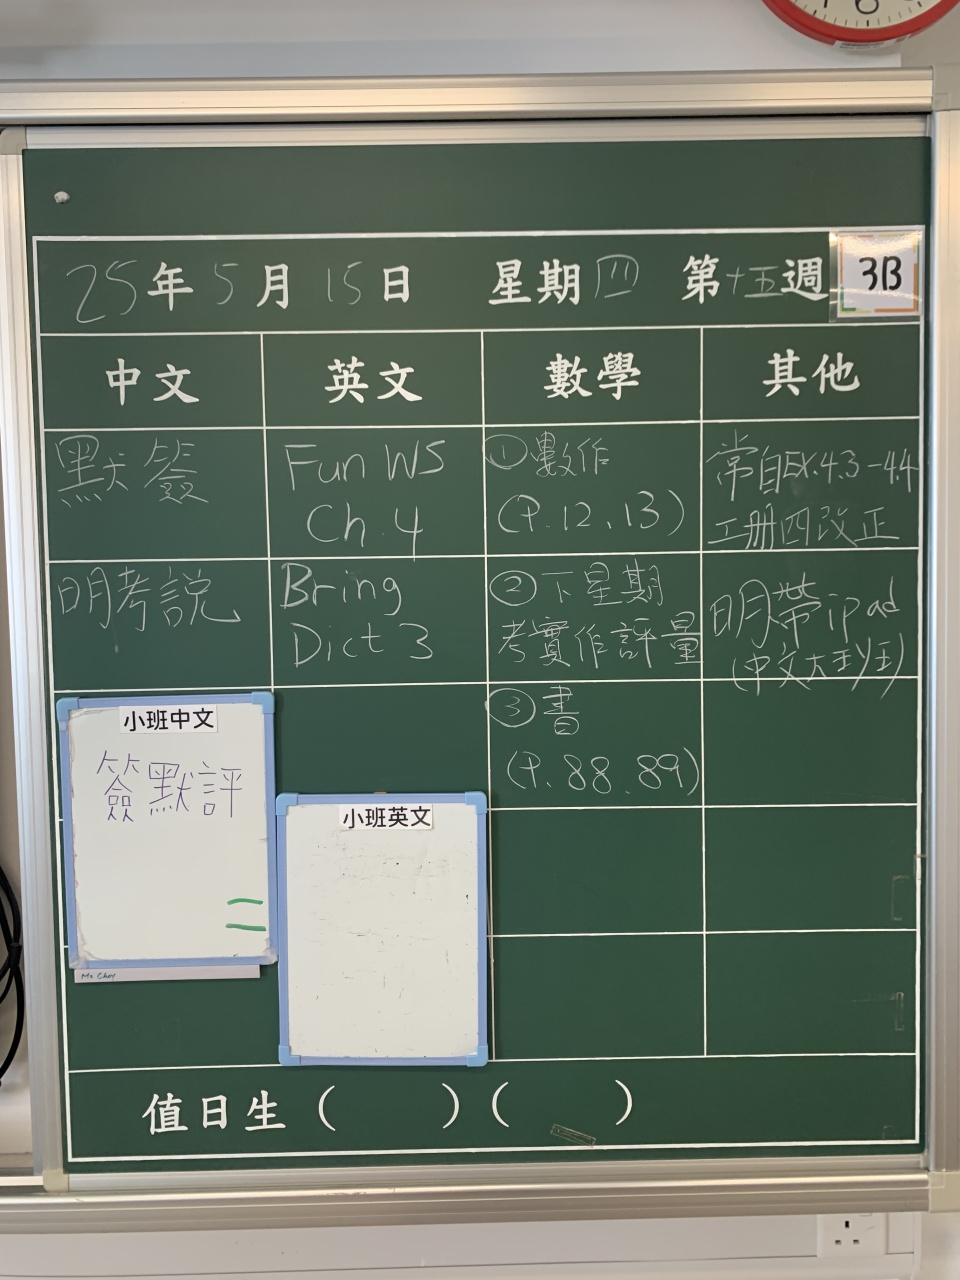 25年5月15日 星期四 第十五週 3B
中文 英文 數學 其他
默簽
Fun WS
Ch. 4
①數作
(P.12、13)
常自EX.4.3-4.4
工册四改正
明考説
Bring
Dict 3
②下星期
考實作評量
明帶ipad
(中文大班)
③書
(P.88、89)
小班中文
簽默評
Ms Choy
小班英文
值日生 ( ) ( )